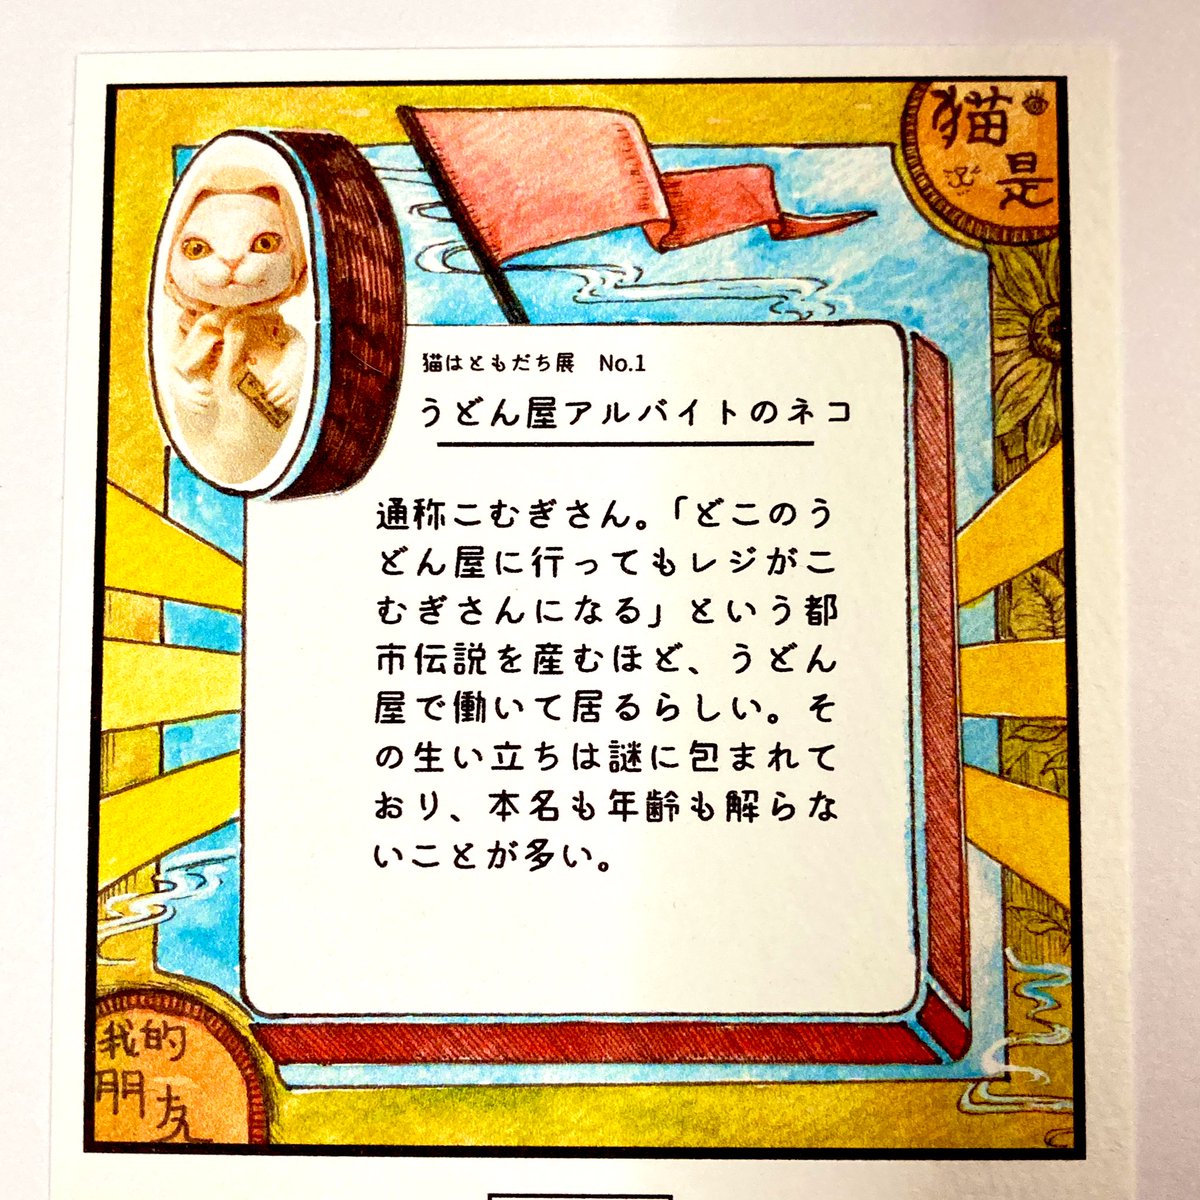 猫
是
猫はともだち展 No.1
うどん屋アルバイトのネコ
通称こむぎさん。「どこのう
どん屋に行ってもレジがこ
むぎさんになる」という都
市伝説を産むほど、うどん
屋で働いて居るらしい。そ
の生い立ちは謎に包まれて
おり、本名も年齢も解らな
いことが多い。
我的
朋友